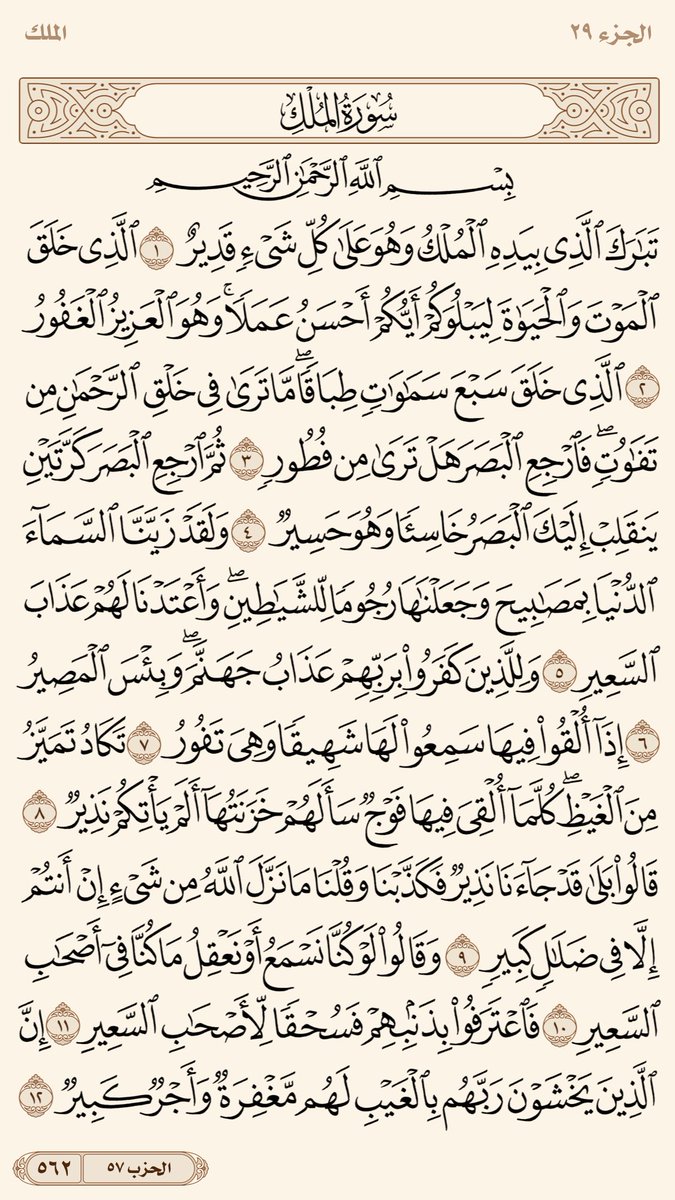 الجزء ٢٩
الملك
سُورَةُ الْمُلْكِ
بِسْمِ ٱللَّهِ ٱلرَّحْمَٰنِ ٱلرَّحِيمِ
تَبَٰرَكَ ٱلَّذِى بِيَدِهِ ٱلْمُلْكُ وَهُوَ عَلَىٰ كُلِّ شَىْءٍ قَدِيرٌ ١ ٱلَّذِى خَلَقَ
ٱلْمَوْتَ وَٱلْحَيَوٰةَ لِيَبْلُوَكُمْ أَيُّكُمْ أَحْسَنُ عَمَلًا ۚ وَهُوَ ٱلْعَزِيزُ ٱلْغَفُورُ
٢ ٱلَّذِى خَلَقَ سَبْعَ سَمَٰوَٰتٍ طِبَاقًا ۖ مَّا تَرَىٰ فِى خَلْقِ ٱلرَّحْمَٰنِ مِن
تَفَٰوُتٍ ۖ فَٱرْجِعِ ٱلْبَصَرَ هَلْ تَرَىٰ مِن فُطُورٍ ٣ ثُمَّ ٱرْجِعِ ٱلْبَصَرَ كَرَّتَيْنِ
يَنقَلِبْ إِلَيْكَ ٱلْبَصَرُ خَاسِئًا وَهُوَ حَسِيرٌ ٤ وَلَقَدْ زَيَّنَّا ٱلسَّمَآءَ
ٱلدُّنْيَا بِمَصَٰبِيحَ وَجَعَلْنَٰهَا رُجُومًا لِّلشَّيَٰطِينِ ۖ وَأَعْتَدْنَا لَهُمْ عَذَابَ
ٱلسَّعِيرِ ٥ وَلِلَّذِينَ كَفَرُوا۟ بِرَبِّهِمْ عَذَابُ جَهَنَّمَ ۖ وَبِئْسَ ٱلْمَصِيرُ
٦ إِذَآ أُلْقُوا۟ فِيهَا سَمِعُوا۟ لَهَا شَهِيقًا وَهِىَ تَفُورُ ٧ تَكَادُ تَمَيَّزُ
مِنَ ٱلْغَيْظِ ۖ كُلَّمَآ أُلْقِىَ فِيهَا فَوْجٌ سَأَلَهُمْ خَزَنَتُهَآ أَلَمْ يَأْتِكُمْ نَذِيرٌ ٨
قَالُوا۟ بَلَىٰ قَدْ جَآءَنَا نَذِيرٌ فَكَذَّبْنَا وَقُلْنَا مَا نَزَّلَ ٱللَّهُ مِن شَىْءٍ إِنْ أَنتُمْ
إِلَّا فِى ضَلَٰلٍ كَبِيرٍ ٩ وَقَالُوا۟ لَوْ كُنَّا نَسْمَعُ أَوْ نَعْقِلُ مَا كُنَّا فِىٓ أَصْحَٰبِ
ٱلسَّعِيرِ ١٠ فَٱعْتَرَفُوا۟ بِذَنۢبِهِمْ فَسُحْقًا لِّأَصْحَٰبِ ٱلسَّعِيرِ ١١ إِنَّ
ٱلَّذِينَ يَخْشَوْنَ رَبَّهُم بِٱلْغَيْبِ لَهُم مَّغْفِرَةٌ وَأَجْرٌ كَبِيرٌ ١٢
الحزب ٥٧
٥٦٢